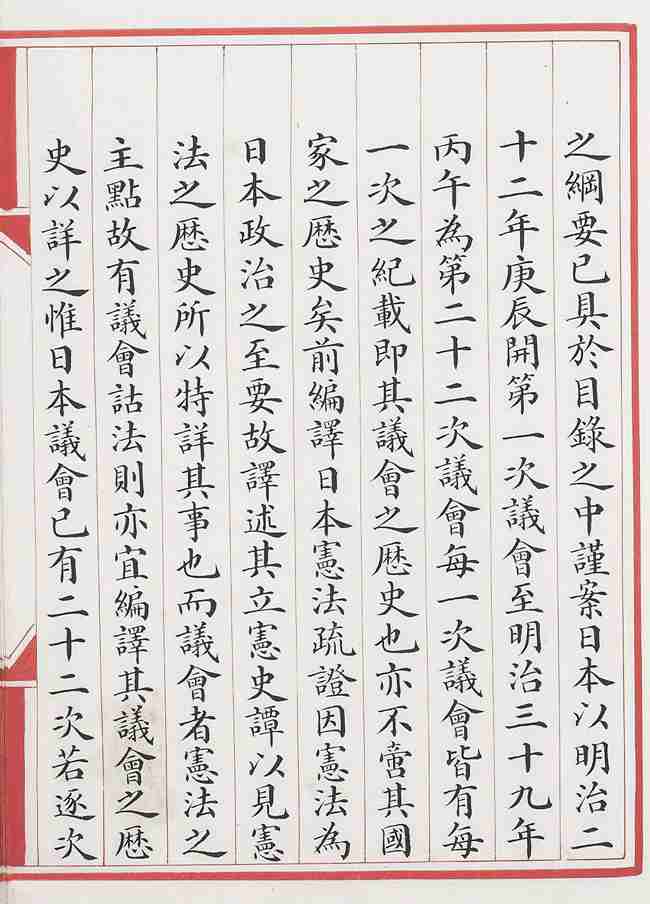 之綱要已具於目錄之中謹案日本以明治二
十二年庚辰開第一次議會至明治三十九年
丙午為第二十二次議會每一次議會皆有每
一次之紀載即其議會之歷史也亦不啻其國
家之歷史矣前編譯日本憲法疏證因憲法為
日本政治之至要故譯述其立憲史譚以見憲
法之歷史所以特詳其事也而議會者憲法之
主點故有議會詁法則亦宜編譯其議會之歷
史以詳之惟日本議會已有二十二次若逐次